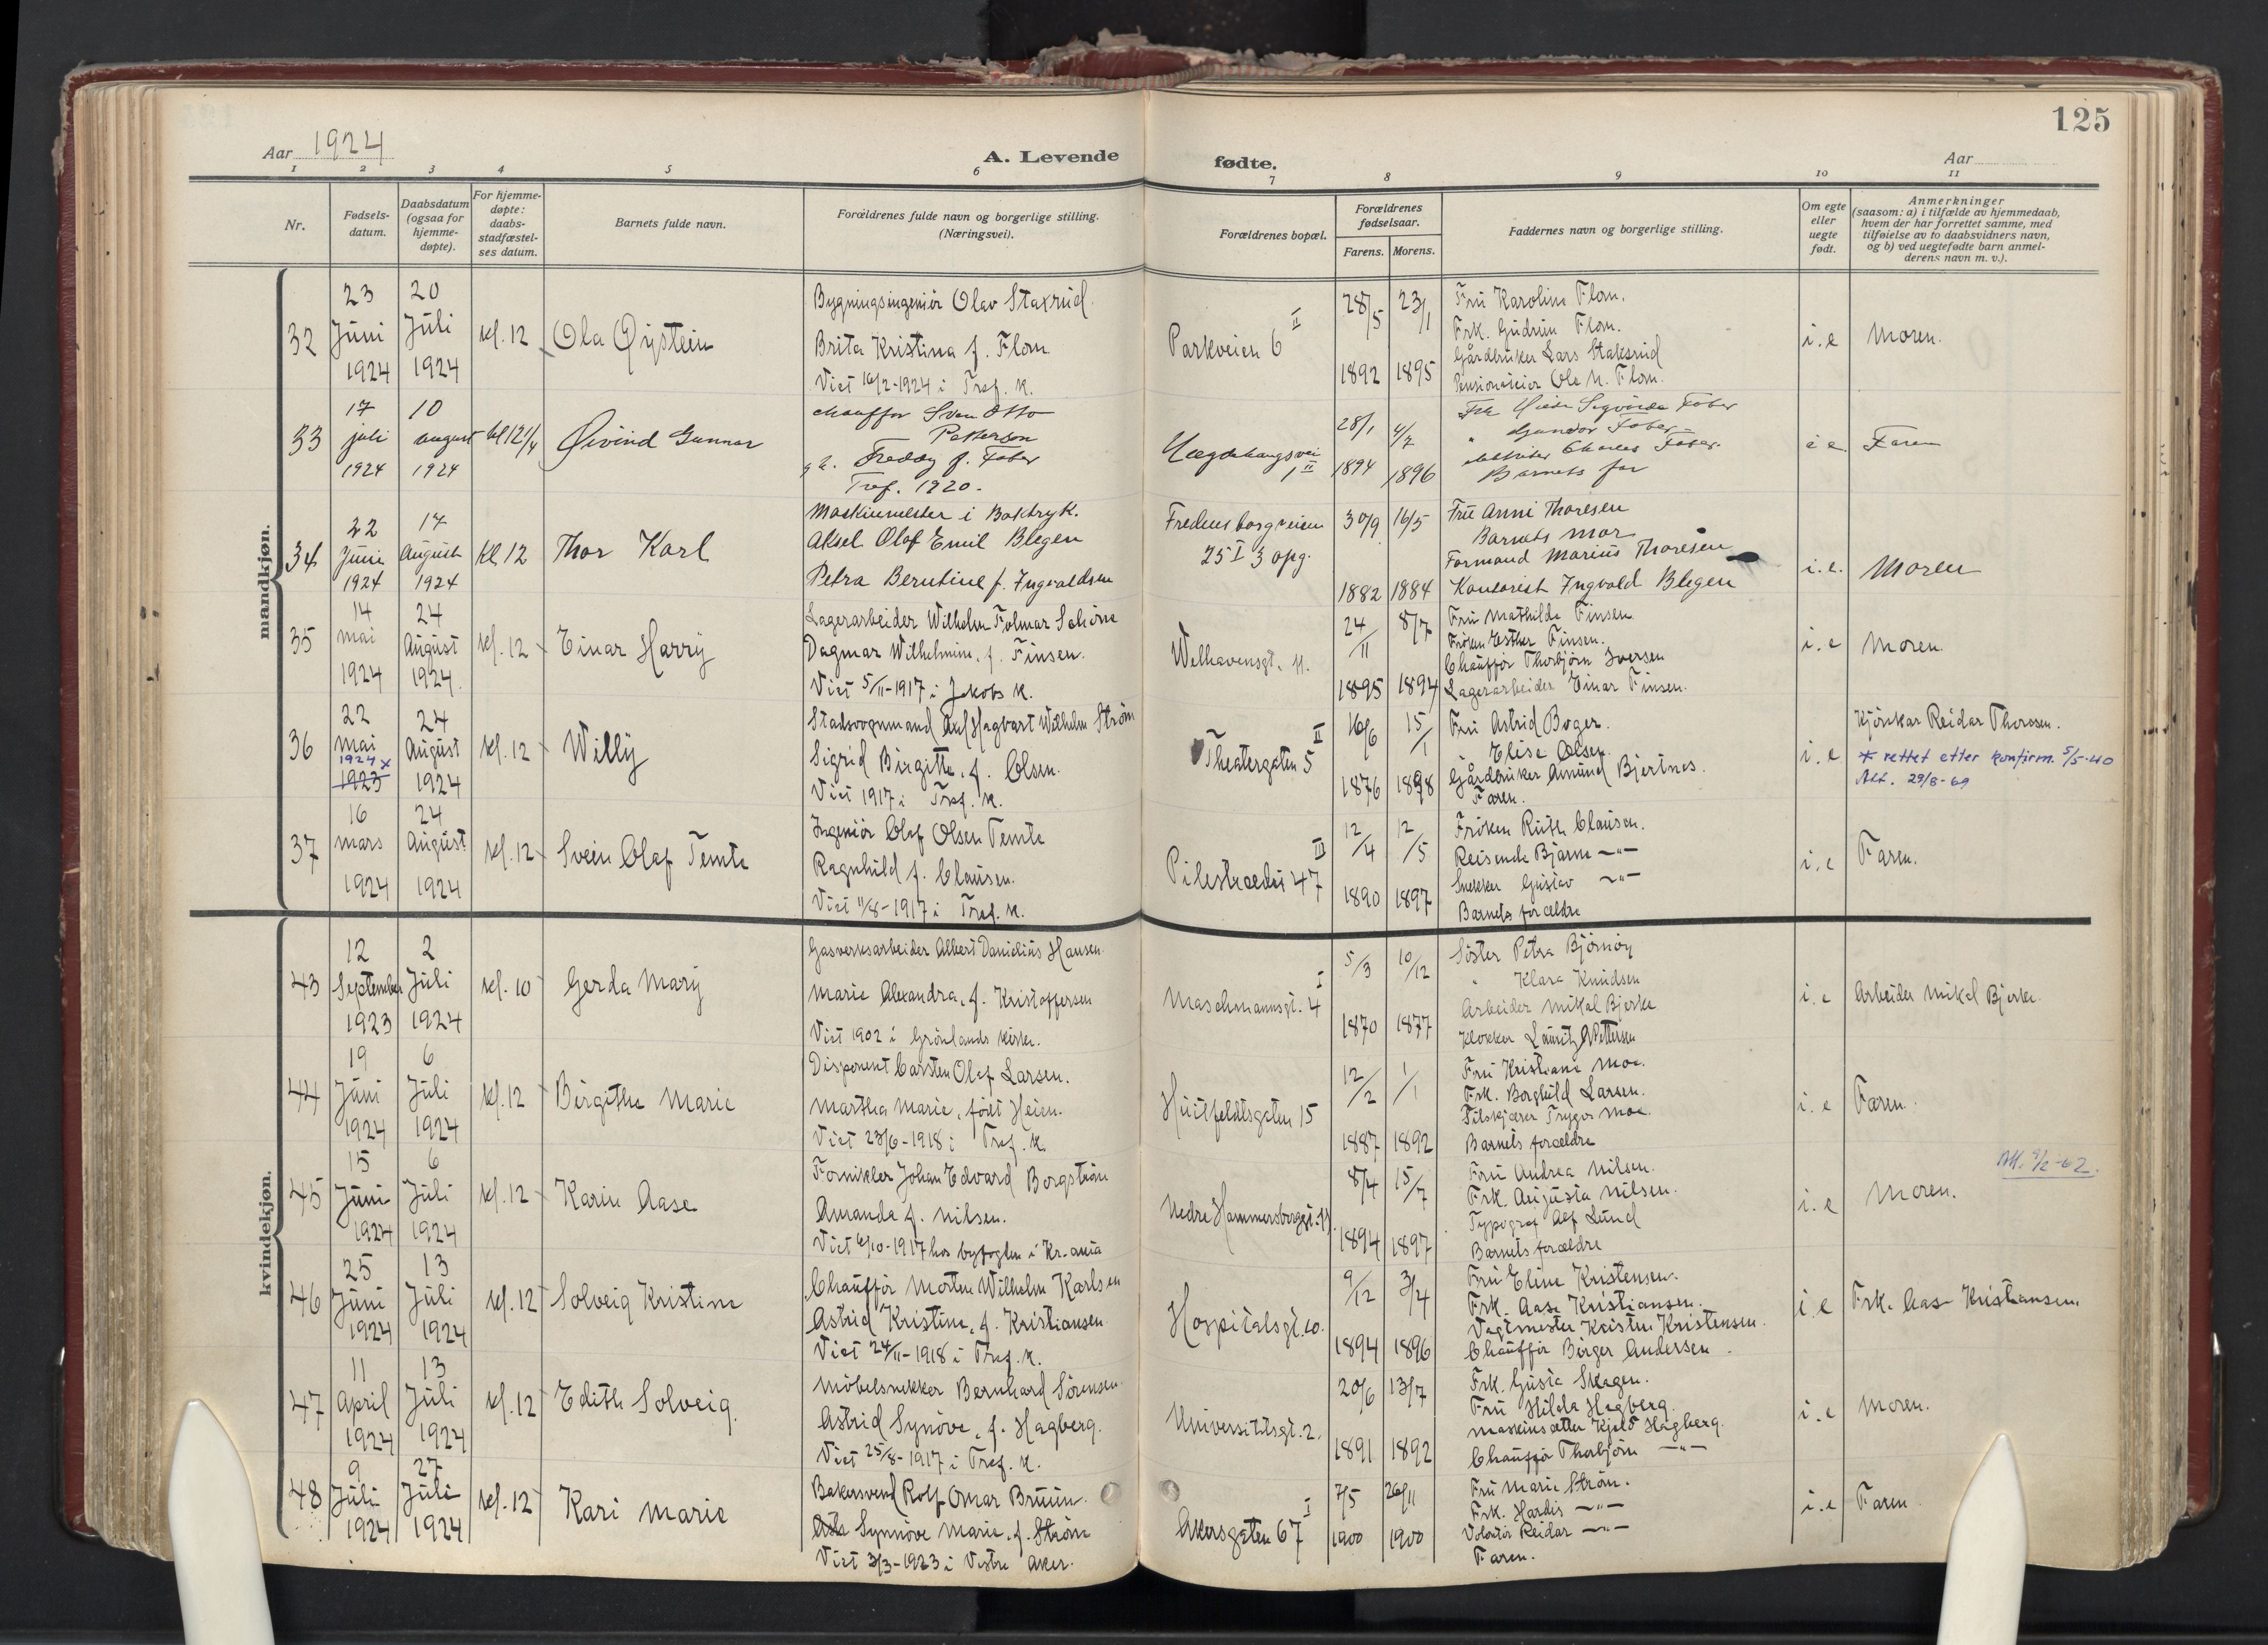 125
Aar 1924
A. Levende
fødte.
Aar
1 2 3 4 5 6 7 8 9 10 11
Nr.
Fødsels-
datum.
Daabsdatum
(ogsaa for
hjemme-
døpte).
For hjemme-
døpte:
daabs-
stadfæstel-
ses datum.
Barnets fulde navn.
Forældrenes fulde navn og borgerlige stilling.
(Næringsvei).
Forældrenes bopæl.
Forældrenes
fødselsaar.
Farens. Morens.
Faddernes navn og borgerlige stilling.
Om egte
eller
uegte
født.
Anmerkninger
(saasom: a) i tilfælde av hjemmedaab,
hvem der har forrettet samme, med
tilføielse av to daabsvidners navn,
og b) ved uegtefødte barn anmel-
derens navn m. v.).
mandkjøn.
32
23
Juni
1924
20
Juli
1924
kl. 12
Ola Øystein
Bygningsingeniør Olav Staxrud.
Brita Kristina f. Flom
Viet 16/2-1924 i Tref. K.
Parkveien 6 II
28/5
1892
23/1
1895
Fru Karoline Flom.
Frk. Gudrun Flom.
Gårdbruker Lars Staksrud
Pensionateier Ole N. Flom.
i. e
Moren.
33
17
juli
1924
10
august
1924
kl 12 1/4
Øivind Gunnar
chauffør Sven Otto
Petterson
Freddy f. Faber
Tref. 1920.
1 II
28/1
1894
4/7
1896
Gunvor Faber
Charles Faber.
Barnets far
i e.
Faren
34
22
Juni
1924
17
August
1924
kl 12
Thor Karl
Maskinmester i Boktryk.
Aksel Olaf Emil Blegen
Petra Berntine f. Ingvaldsen
Fredensborgveien
25 I 3 opg.
30/9
1882
16/5
1884
Fru Anni Thoresen
Barnets mor
Formand Marius Thoresen
Kontorist Ingvald Blegen
i. e.
Moren
35
14
mai
1924
24
August
1924.
kl. 12
Einar Harry
Lagerarbeider Wilhelm Folmar Schöne
Dagmar Wilhelmine, f. Finsen.
Viet 5/11-1917 i Jakobs K.
Welhavensgt. 11.
24/11
1895
8/7
1894
Fru Mathilde Finsen
Frøken Esther Finsen.
Chauffør Thorbjørn Iversen
Lagerarbeider Einar Finsen.
i. e
Moren.
36
22
mai
1924 x
1923
24
August
1924
kl. 12
Willy
Stadsvognmand Axel Hagbart Wilhelm Strøm
Sigrid Birgitte, f. Olsen.
Viet 1917 i Tref. K.
Theatergaten 5 II
16/6
1876
15/1
1898
Fru Astrid Boger.
" Elise Olsen.
Gårdbruker Amund Bjertnes.
Faren.
i. e
Kjørekar Reidar Thoresen.
* rettet etter konfirm. 5/5-40
Att. 29/8-69
37
16
mars
1924
24
August
1924
kl. 12
Svein Olaf Temte
Ingeniør Olaf Olsen Temte
Ragnhild f. Clausen.
Viet 11/8-1917 i Tref. K.
Pilestrædet 47 III
12/4
1890
12/5
1897
Frøken Ruth Clausen.
Reisende Bjarne —"—
Snekker Gustav —"—
Barnets forældre
i. e
Faren.
kvindekjøn.
43
12
September
1923
2
Juli
1924
kl. 10
Gerda Mary
Gasverksarbeider Albert Danielius Hansen.
Marie Alexandra, f. Kristoffersen
Viet 1902 i Grönlands kirke.
Maschmannsgt. 4 I
5/3
1870
10/12
1877
Søster Petra Bjørnøy
" Klara Knudsen
Arbeider Mikal Bjerke
Klokker Lauritz A Pettersen
i. e
Arbeider Mikal Bjerke.
44
19
Juni
1924
6
Juli
1924
kl. 12
Birgithe Marie
Disponent Carsten Olaf Larsen.
Martha Marie, født Heien.
Viet 23/6-1918 i Tref. K.
Huitfeldtsgaten 15
12/2
1887
1/1
1892
Fru Kristiane Moe.
Frk. Borghild Larsen.
Tilskjærer Trygve Moe.
Barnets forældre
i. e
Faren.
45
15
Juni
1924
6
Juli
1924
kl. 12
Karin Aase
Fornikler Johan Edvard Borgstrøm
Amanda f. Nilsen.
Viet 6/10-1917 hos byfogden i Kr.ania
Nedre Hammersborggt. 11.
8/4
1894
15/7
1897
Fru Andrea Nilsen.
Frk. Augusta Nilsen.
Typograf Alf Lund
Barnets forældre
i. e
Moren.
46
25
Juni
1924
13
Juli
1924
kl. 12
Solveig Kristine
Chauffør Morten Wilhelm Karlsen
Astrid Kristine, f. Kristiansen
Viet 24/11-1918 i Tref. K.
Hospitalsgt. 10.
9/12
1894
3/4
1896
Fru Eline Kristensen.
Frk. Aase Kristiansen.
Vagtmester Kristen Kristensen.
Chauffør Birger Andersen.
i. e
Frk. Aase Kristiansen.
47
11
April
1924
13
Juli
1924
kl. 12
Edith Solveig.
Møbelsnekker Bernhard Sörensen.
Astrid Synöve, f. Hagberg.
Viet 25/8-1917 i Tref. K.
Universitetsgt. 2.
20/6
1891
13/7
1892
Frk. Gusta Skagen.
Fru Hilda Hagberg
Maskinsætter Kjeld Hagberg.
Chauffør Thorbjørn —"—
i. e
Moren.
48
9
Juli
1924
27
Juli
1924
kl. 12
Kari Marie
Bakersvend Rolf Omar Bruun.
Synnöve Marie, f. Ström
Viet 3/3-1923 i Vestre Aker.
Akersgaten 67 I
7/5
1900
26/11
1900
Fru Marie Strøm.
Frk. Hardis —"—
Volontør Reidar —"—
Faren.
i. e
Faren.